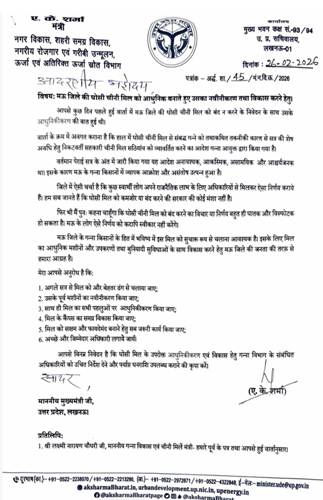 ए. के. शर्मा
मंत्री
नगर विकास, शहरी समग्र विकास,
नगरीय रोजगार एवं गरीबी उन्मूलन,
ऊर्जा एवं अतिरिक्त ऊर्जा स्रोत विभाग
कार्यालय
मुख्य भवन कक्ष सं.-93/94
उ. प्र. सचिवालय,
लखनऊ-01
दिनांक : 26-02-2026
पत्रांक - अर्द्ध. शा./ 45 /मं.न.वि.r/2026
आदरणीय महोदय
विषयः मऊ जिले की घोसी चीनी मिल को आधुनिक बनाते हुए उसका नवीनीकरण तथा विकास करने हेतु।
आपसे कुछ दिन पहले हुई वार्ता में मऊ जिले की घोसी चीनी मिल को बंद न करने के निवेदन के साथ उसके
आधुनिकीकरण की बात हुई थी।
वार्ता के क्रम में अवगत कराना है कि हाल में घोसी चीनी मिल से संबद्ध गन्ने को तथाकथित तकनीकी कारण से सत्र की शेष
अवधि हेतु निकटवर्ती सहकारी चीनी मिल सठियांव को स्थानांतरित करने का आदेश गन्ना आयुक्त द्वारा किया गया है।
वर्तमान पेराई सत्र के अंत में जारी किया गया यह आदेश अनावश्यक, आकस्मिक, असामयिक और आश्चर्यजनक
था। इसके कारण मऊ के गन्ना किसानों में व्यापक आक्रोश और असंतोष उत्पन्न हुआ है।
जिले में ऐसी चर्चा है कि कुछ स्वार्थी लोग अपने राजनैतिक लाभ के लिए अधिकारियों से मिलकर ऐसा निर्णय कराये
हैं। हम सब जानते हैं कि घोसी मिल को कमजोर या बंद करने की सरकार की कोई मंशा नहीं है।
फिर भी मैं पुनः कहना चाहूँगा कि घोसी चीनी मिल को बंद करने का विचार या निर्णय बहुत ही घातक और विस्फोटक
हो सकता है। मऊ के लोग ऐसे निर्णय को कदापि स्वीकार नहीं करेंगे।
मऊ जिले के गन्ना किसानों के हित में भविष्य में इस मिल को सुचारू रूप से चलाना आवश्यक है। इसके लिए मिल
का आधुनिक मशीनों और उपकरणों तथा बुनियादी सुविधाओं के साथ विकास करने हेतु मऊ जिले की जनता की तरफ़ से
हमारा आग्रह है।
मेरा आपसे अनुरोध है कि:
1. अगले सत्र से मिल को और बेहतर ढंग से चलाया जाए;
2. उसके पूर्व मशीनों का नवीनीकरण किया जाए;
3. साथ ही मिल का सभी पहलुओं पर आधुनिकीकरण किया जाए;
4. मिल के कैंपस का समग्र विकास किया जाए;
5. मिल को सक्षम और फायदेमंद बनाने हेतु सब जरूरी कार्य किया जाए;
6. अच्छे और जिम्मेदार अधिकारी लगाये जायें।
आपसे विनम्र निवेदन है कि घोसी मिल के उपरोक्त आधुनिकीकरण एवं विकास हेतु गन्ना विभाग के संबंधित
अधिकारियों को उचित निर्देश देने और पर्याप्त धनराशि उपलब्ध कराने की कृपा करें।
सादर,
(ए. के. शर्मा)
माननीय मुख्यमंत्री जी,
उत्तर प्रदेश, लखनऊ।
प्रतिलिपिः
1. श्री लक्ष्मी नारायण चौधरी जी, माननीय गन्ना विकास एवं चीनी मिलें मंत्री- हमारे पूर्व के पत्र तथा आपसे हुई वार्तानुसार।
दूरभाष(का.)- +91-0522-2238070/ +91-0522-2213296, (आ.)- +91-0522-2972671/ +91-0522-4322848, ई-मेल:- minister.ude@up.gov.in
@aksharmaBharat.in, urbandevelopment.up.nic.in, upenergy.in
@aksharmaBharatpage @aksharmaBharat